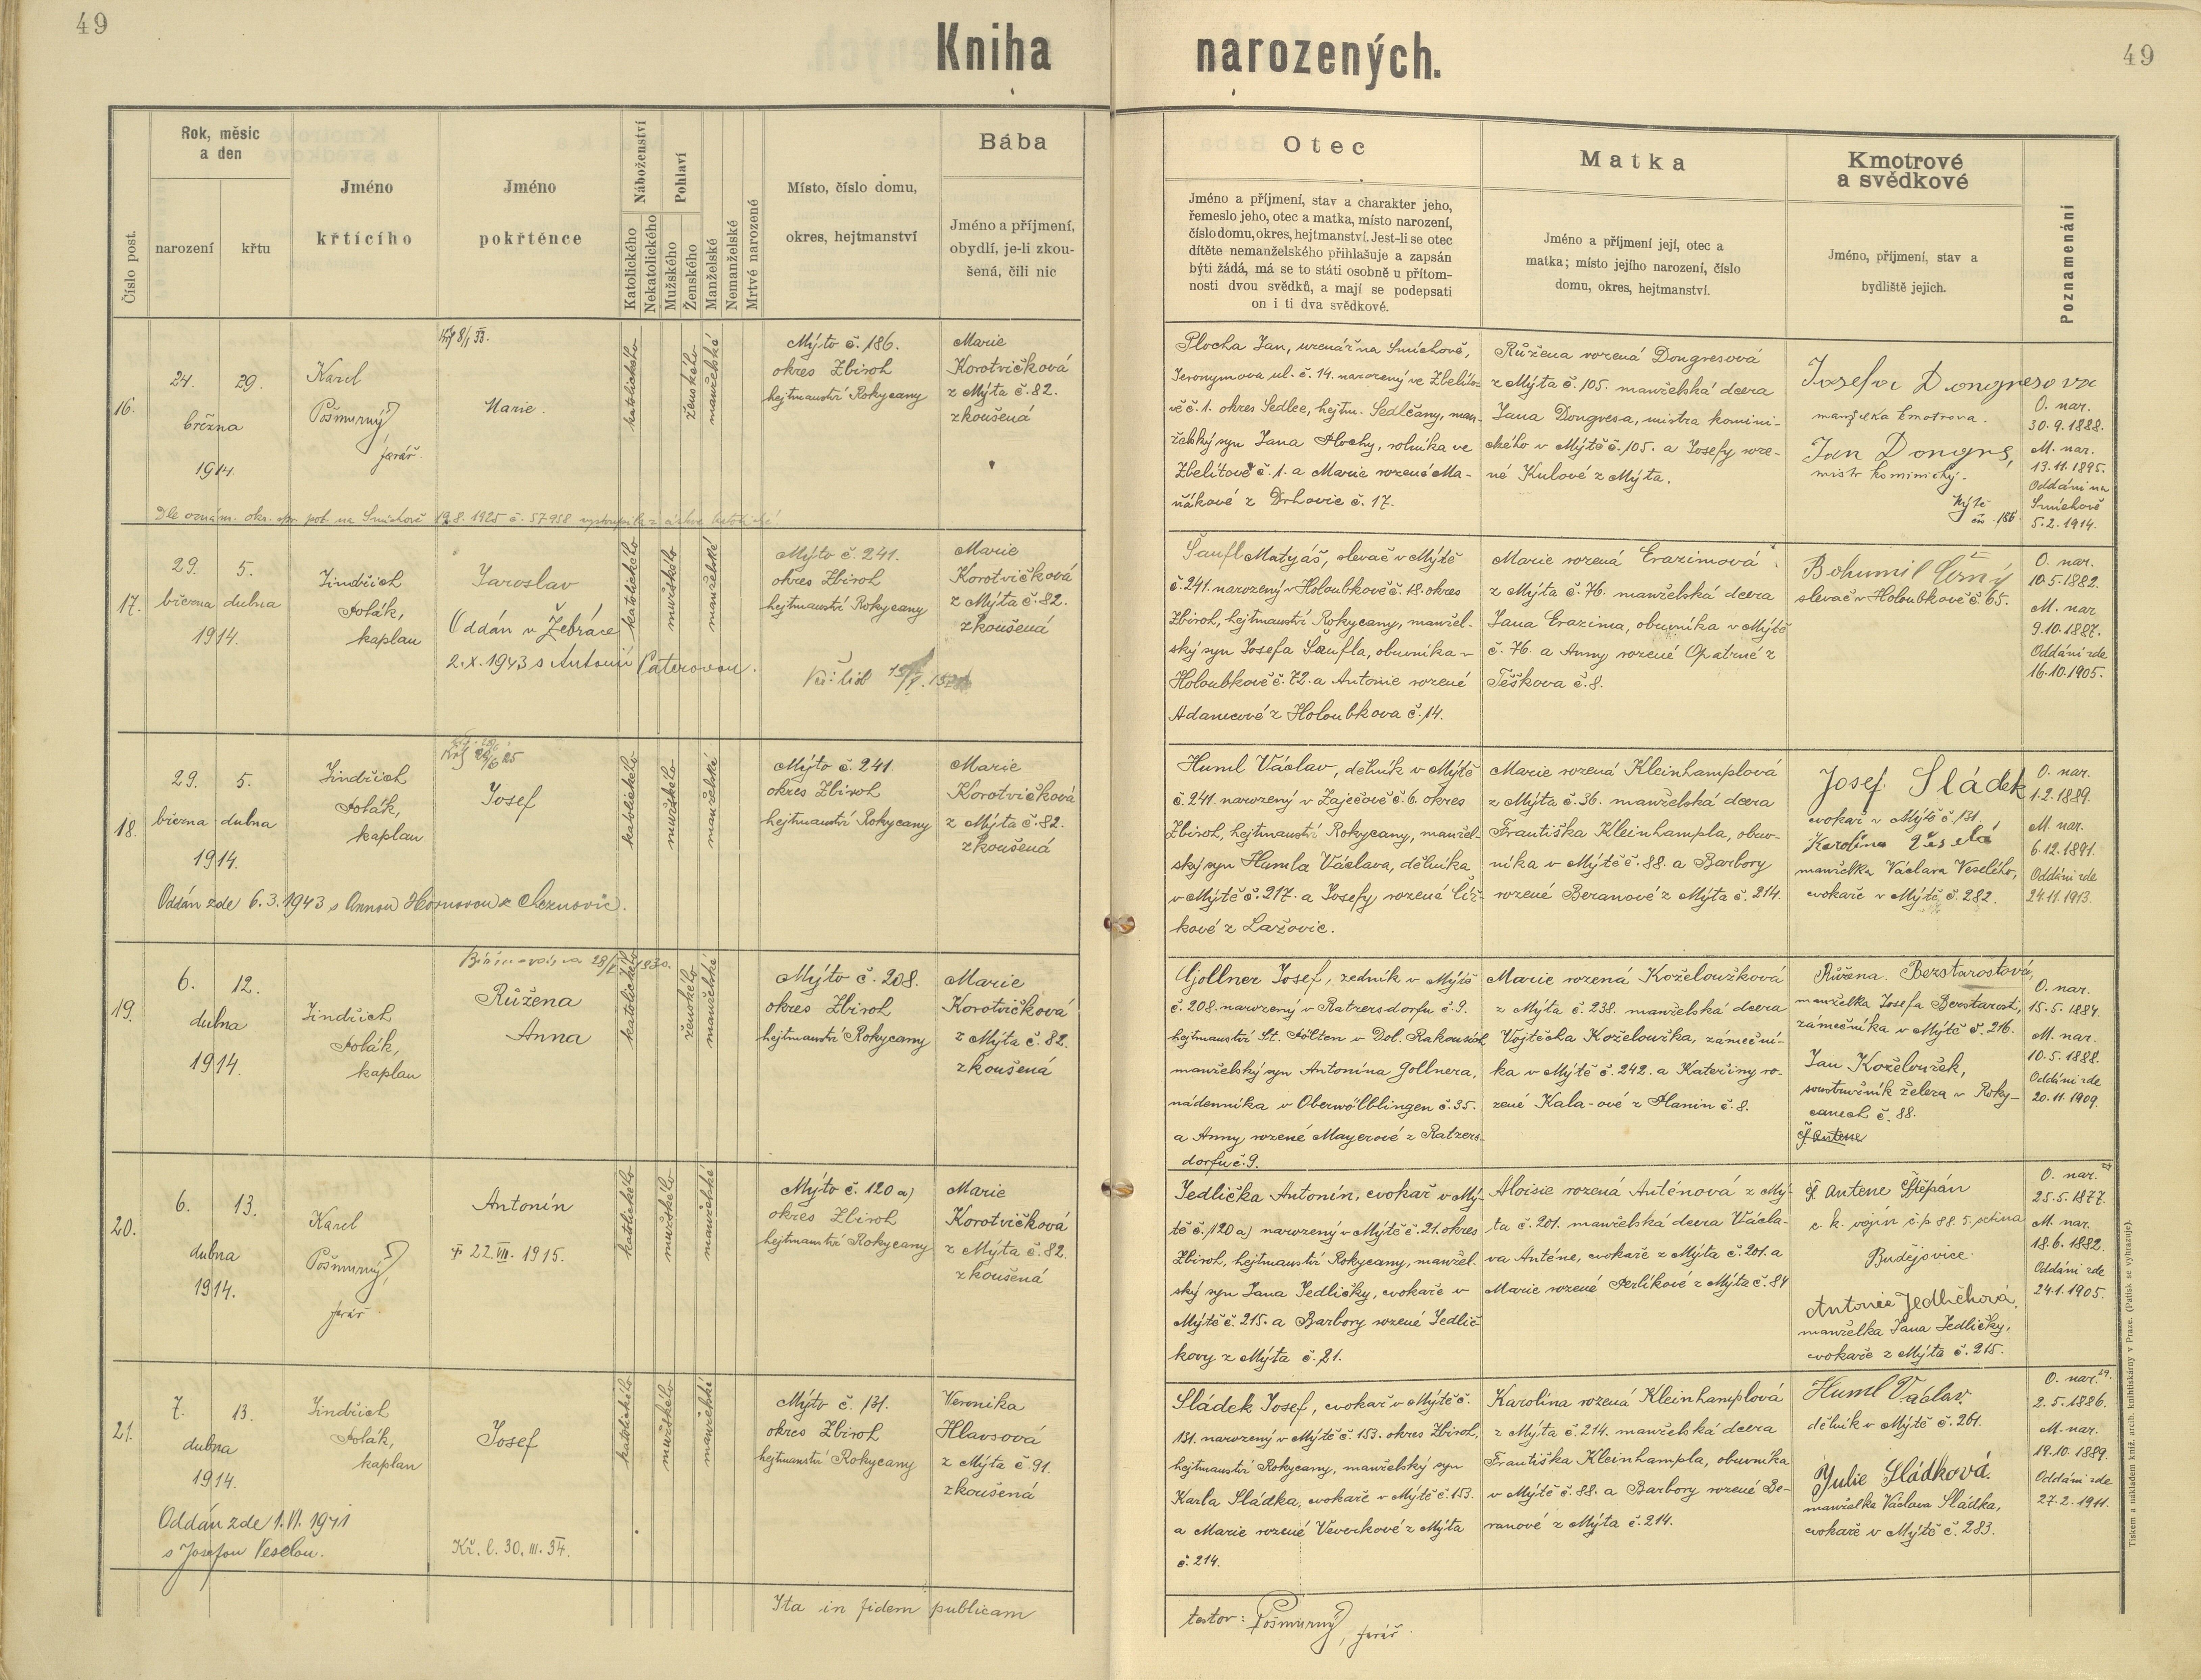 49
Kniha narozených.
49
Číslo post.
Rok, měsíc
a den
narození
křtu
Jméno
křtícího
Jméno
pokřtěnce
Náboženství
Katolického
Nekatolického
Pohlaví
Mužského
Ženského
Manželské
Nemanželské
Mrtvě narozené
Místo, číslo domu,
okres, hejtmanství
Bába
Jméno a příjmení,
obydlí, je-li zkou-
šená, čili nic
Otec
Jméno a příjmení, stav a charakter jeho,
řemeslo jeho, otec a matka, místo narození,
číslo domu, okres, hejtmanství. Jest-li se otec
dítěte nemanželského přihlašuje a zapsán
býti žádá, má se to státi osobně u přítom-
nosti dvou svědků, a mají se podepsati
on i ti dva svědkové.
Matka
Jméno a příjmení její, otec a
matka; místo jejího narození, číslo
domu, okres, hejtmanství.
Kmotrové
a svědkové
Jméno, příjmení, stav a
bydliště jejich.
Poznamenání
16.
24. 29.
března
1914.
Karel
Pošmurný
farář
Marie.
katolického
ženského
manželské
Mýto č. 186.
okres Zbiroh
hejtmanství Rokycany
Marie
Korotvičková
z Mýta č. 82.
zkoušená
Dle oznám. okr. spr. pol. na Smíchově 19.8.1925 č. 57958 vystoupila z církve katolické
Plocha Jan, uzenář na Smíchově,
Jeronymova ul. č. 14. narozený ve Zbelíto-
vě č. 1. okres Sedlec, hejtm. Sedlčany, man-
želský syn Jana Plochy, rolníka ve
Zbelítově č. 1. a Marie rozené Ma-
ňákové z Drhovic č. 17.
Růžena rozená Dongresová
z Mýta č. 105. manželská dcera
Jana Dongresa, mistra komini-
ckého v Mýtě č. 105. a Josefy roze-
né Kulové z Mýta.
Josefa Dongresova
manželka kmotrova.
Jan Dongres,
mistr kominický
Mýtě
čís. 186.
O. nar.
30.9.1888.
M. nar.
13.11.1895.
Oddáni na
Smíchově
5.2.1914.
17.
29. 5.
března dubna
1914.
Jindřich
Polák,
kaplan
Jaroslav
Oddán v Žebráce
2.X.1943 s Antonií Paterovou.
katolického
mužského
manželské
Mýto č. 241.
okres Zbiroh
hejtmanství Rokycany
Marie
Korotvičková
z Mýta č. 82.
zkoušená
Šaufl Matyáš, slevač v Mýtě
č. 241. narozený v Holoubkově č. 18. okres
Zbiroh, hejtmanství Rokycany, manžel-
ský syn Josefa Šaufla, obuvníka v
Holoubkově č. 72. a Antonie rozené
Adamcové z Holoubkova č. 14.
Marie rozená Erazimová
z Mýta č. 76. manželská dcera
Jana Erazima, obuvníka v Mýtě
č. 76. a Anny rozené Opatrné z
Těškova č. 8.
Bohumil Černý
slevač v Holoubkově č. 65.
O. nar.
10.5.1882.
M. nar.
9.10.1887.
Oddáni zde
16.10.1905.
18.
29. 5.
března dubna
1914.
Jindřich
Polák,
kaplan
Josef
katolického
mužského
manželské
Mýto č. 241.
okres Zbiroh
hejtmanství Rokycany
Marie
Korotvičková
z Mýta č. 82.
zkoušená
Oddán zde 6.3.1943 s Annou Hornovou z Cheznovic.
Huml Václav, dělník v Mýtě
č. 241. narozený v Zaječově č. 6. okres
Zbiroh, hejtmanství Rokycany, manžel-
ský syn Humla Václava, dělníka
v Mýtě č. 217. a Josefy rozené Číž-
kové z Lažovic.
Marie rozená Kleinhamplová
z Mýta č. 36. manželská dcera
Františka Kleinhampla, obuv-
níka v Mýtě č. 88. a Barbory
rozené Beranové z Mýta č. 214.
Josef Sládek
cvokař v Mýtě č. 131.
Karolina Veselá
manželka Václava Veselého,
cvokaře v Mýtě č. 282.
O. nar.
1.2.1889.
M. nar.
6.12.1891.
Oddáni zde
24.11.1913.
19.
6. 12.
dubna
1914.
Jindřich
Polák,
kaplan
Růžena
Anna
katolického
ženského
manželské
Mýto č. 208.
okres Zbiroh
hejtmanství Rokycany
Marie
Korotvičková
z Mýta č. 82.
zkoušená
Gollner Josef, zedník v Mýtě
č. 208. narozený v Ratzersdorfu č. 9.
hejtmanství St. Pölten v Dol. Rakousích
manželský syn Antonína Gollnera,
nádenníka v Oberwölblingen č. 35.
a Anny rozené Mayerové z Ratzers-
dorfu č. 9.
Marie rozená Koželoužková
z Mýta č. 238. manželská dcera
Vojtěcha Koželoužka, zámeční-
ka v Mýtě č. 242. a Kateřiny ro-
zené Kala-ové z Planin č. 8.
Růžena Bezstarostová,
manželka Josefa Bezstarosti,
zámečníka v Mýtě č. 216.
Jan Koželoužek,
soustružník železa v Roky-
canech č. 88.
Š Antene
O. nar.
15.5.1884.
M. nar.
10.5.1888.
Oddáni zde
20.11.1909.
20.
6. 13.
dubna
1914.
Karel
Pošmurný,
farář
Antonín
† 22.VII. 1915.
katolického
mužského
manželské
Mýto č. 120 a)
okres Zbiroh
hejtmanství Rokycany
Marie
Korotvičková
z Mýta č. 82.
zkoušená
Jedlička Antonín, cvokař v Mý-
tě č. 120 a) narozený v Mýtě č. 21. okres
Zbiroh, hejtmanství Rokycany, manžel-
ský syn Jana Jedličky, cvokaře v
Mýtě č. 215. a Barbory rozené Jedlič-
kovy z Mýta č. 21.
Aloisie rozená Anténová z Mý-
ta č. 201. manželská dcera Václa-
va Anténe, cvokaře z Mýta č. 201. a
Marie rozené Perlíkové z Mýta č. 84
Š. Antene Štěpán
c. k. vojín č. p 88. 5. setina
Budějovice.
Antonie Jedličková,
manželka Jana Jedličky,
cvokaře z Mýta č. 215.
O. nar.
25.5.1877.
M. nar.
18.6.1882.
Oddáni zde
24.1.1905.
21.
7. 13.
dubna
1914.
Jindřich
Polák,
kaplan
Josef
katolického
mužského
manželské
Mýto č. 131.
okres Zbiroh
hejtmanství Rokycany
Veronika
Hlavsová
z Mýta č. 91.
zkoušená
Oddán zde 1.VI.1941
s Josefou Veselou.
Kř. l. 30. III. 34.
Sládek Josef, cvokař v Mýtě č.
131. narozený v Mýtě č. 153. okres Zbiroh,
hejtmanství Rokycany, manželský syn
Karla Sládka, cvokaře v Mýtě č. 153.
a Marie rozené Veverkové z Mýta
č. 214.
Karolina rozená Kleinhamplová
z Mýta č. 214. manželská dcera
Františka Kleinhampla, obuvníka
v Mýtě č. 88. a Barbory rozené Be-
ranové z Mýta č. 214.
Huml Václav.
dělník v Mýtě č. 261.
Julie Sládková.
manželka Václava Sládka,
cvokaře v Mýtě č. 283.
O. nar.
2.5.1886.
M. nar.
19.10.1889.
Oddáni zde
27.2.1911.
Ita in fidem publicam
testor: Pošmurný, farář.
Tiskem a nákladem kníž. arcib. knihtiskárny v Praze. (Patisk se vyhrazuje).